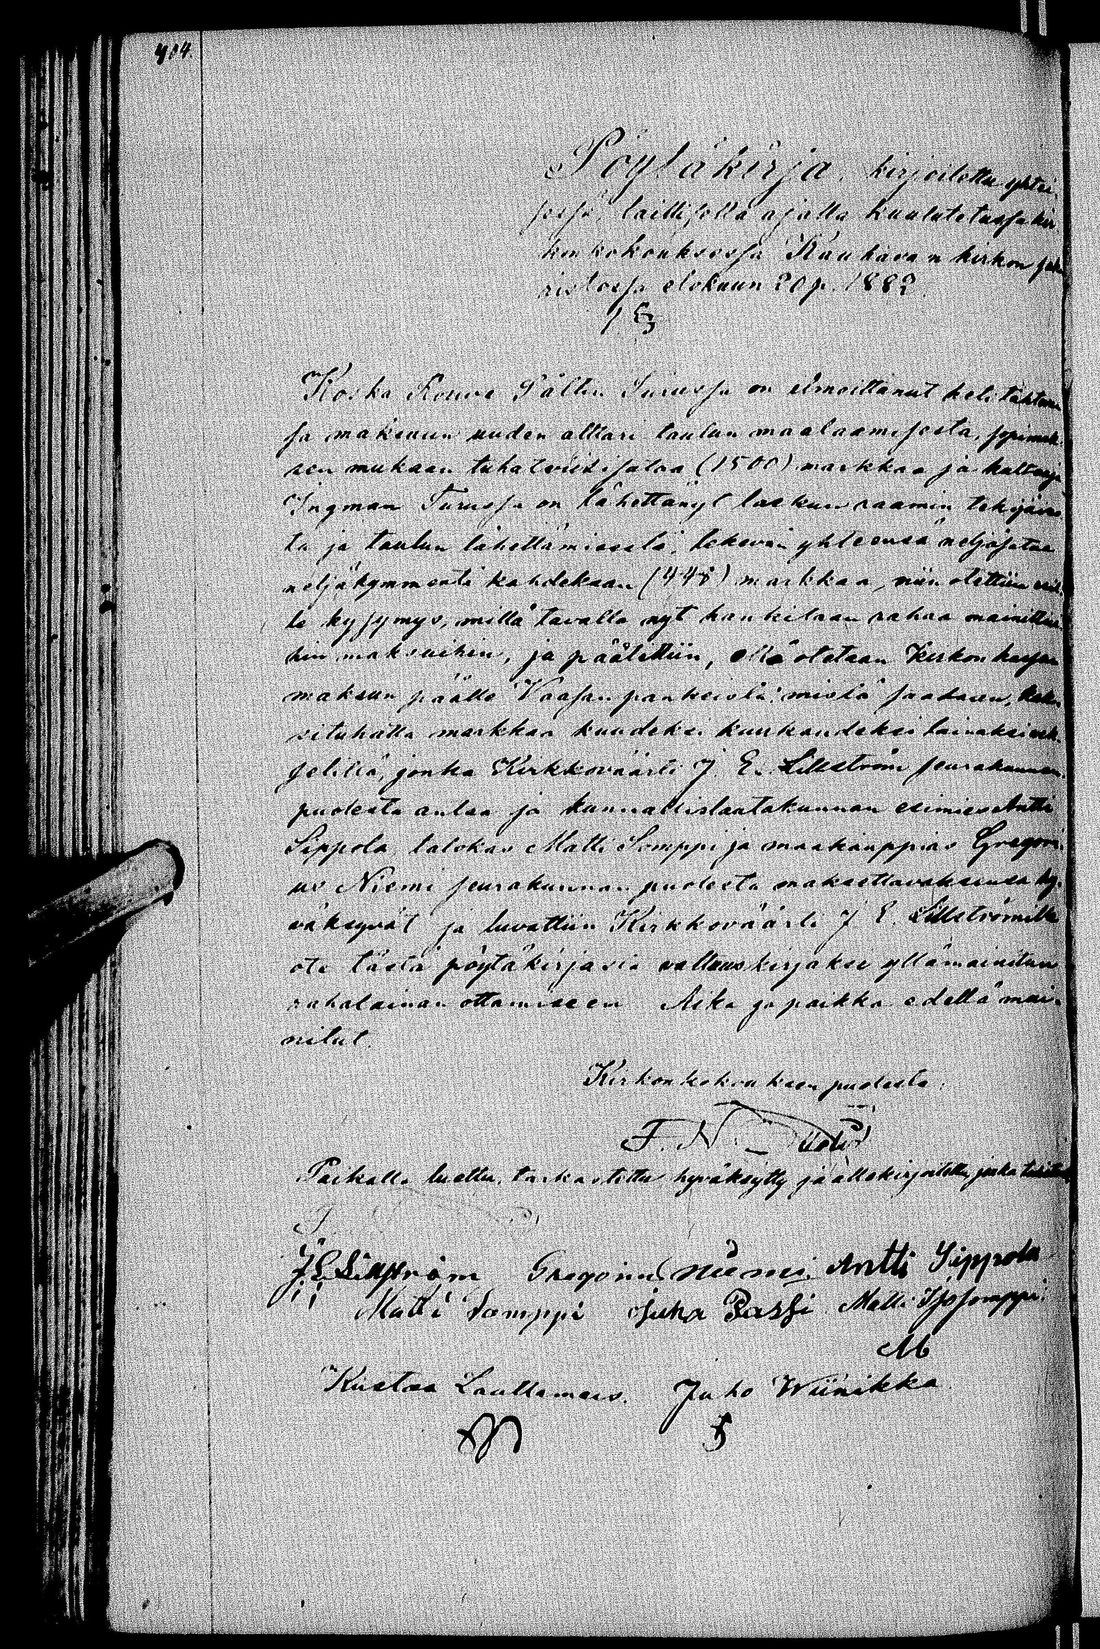 404.
Pöytäkirja, kirjoitettu yhtei-
sessä, laillisella ajalla kuulutetussa kir-
konkokouksessa Kauhavan kirkon saka-
ristossa elokuun 20 p. 1882.
1 §
Koska Rouva Fältin Turussa on ilmoittanut heti tahtovan-
sa maksuun uuden alttari taulun maalaamisesta, sopimuk-
sen mukaan tuhatviisisataa (1500) markkaa ja kultaaja
Ingman Turussa on lähettänyt laskun raamin tekijäis-
tä ja taulun lähettämisestä, tekevän yhteensä neljäsataa
neljäkymmentä kahdeksaan (448) markkaa, niin otettiin esil-
le kysymys, millä tavalla nyt hankitaan rahaa mainittui-
hin maksuihin, ja päätettiin, että otetaan kirkon kassan
maksun päälle Vaasan pankeista mistä saadaan,
situhatta markkaa kuudeksi kuukaudeksi lainaksi
setiliä, jonka Kirkkoväärti J. E. Lillström seurakunnan
puolesta antaa ja kunnallislautakunnan esimies Antti
Sippola, talokas Matti Somppi ja maakauppias Gregori-
us Niemi seurakunnan puolesta maksettavaksensa hy-
väksyvät ja luvattiin Kirkkoväärti J. E. Lillströmille
ote tästä pöytäkirjasta valtuuskirjaksi yllämainitun
rahalainan ottamiseen. Aika ja paikka edellämai-
nitut.
Kirkonkokouksen puolesta:
F. N.
Paikalla luettu, tarkastettu hyväksytty ja allekirjoitettu, jonka todistavat
J E Lillström Gregorius Niemi. Antti Sippola
Matti Somppi Juha Passi Matti Isosomppi
M
Kustaa Lauttamus. Juho Wiinikka